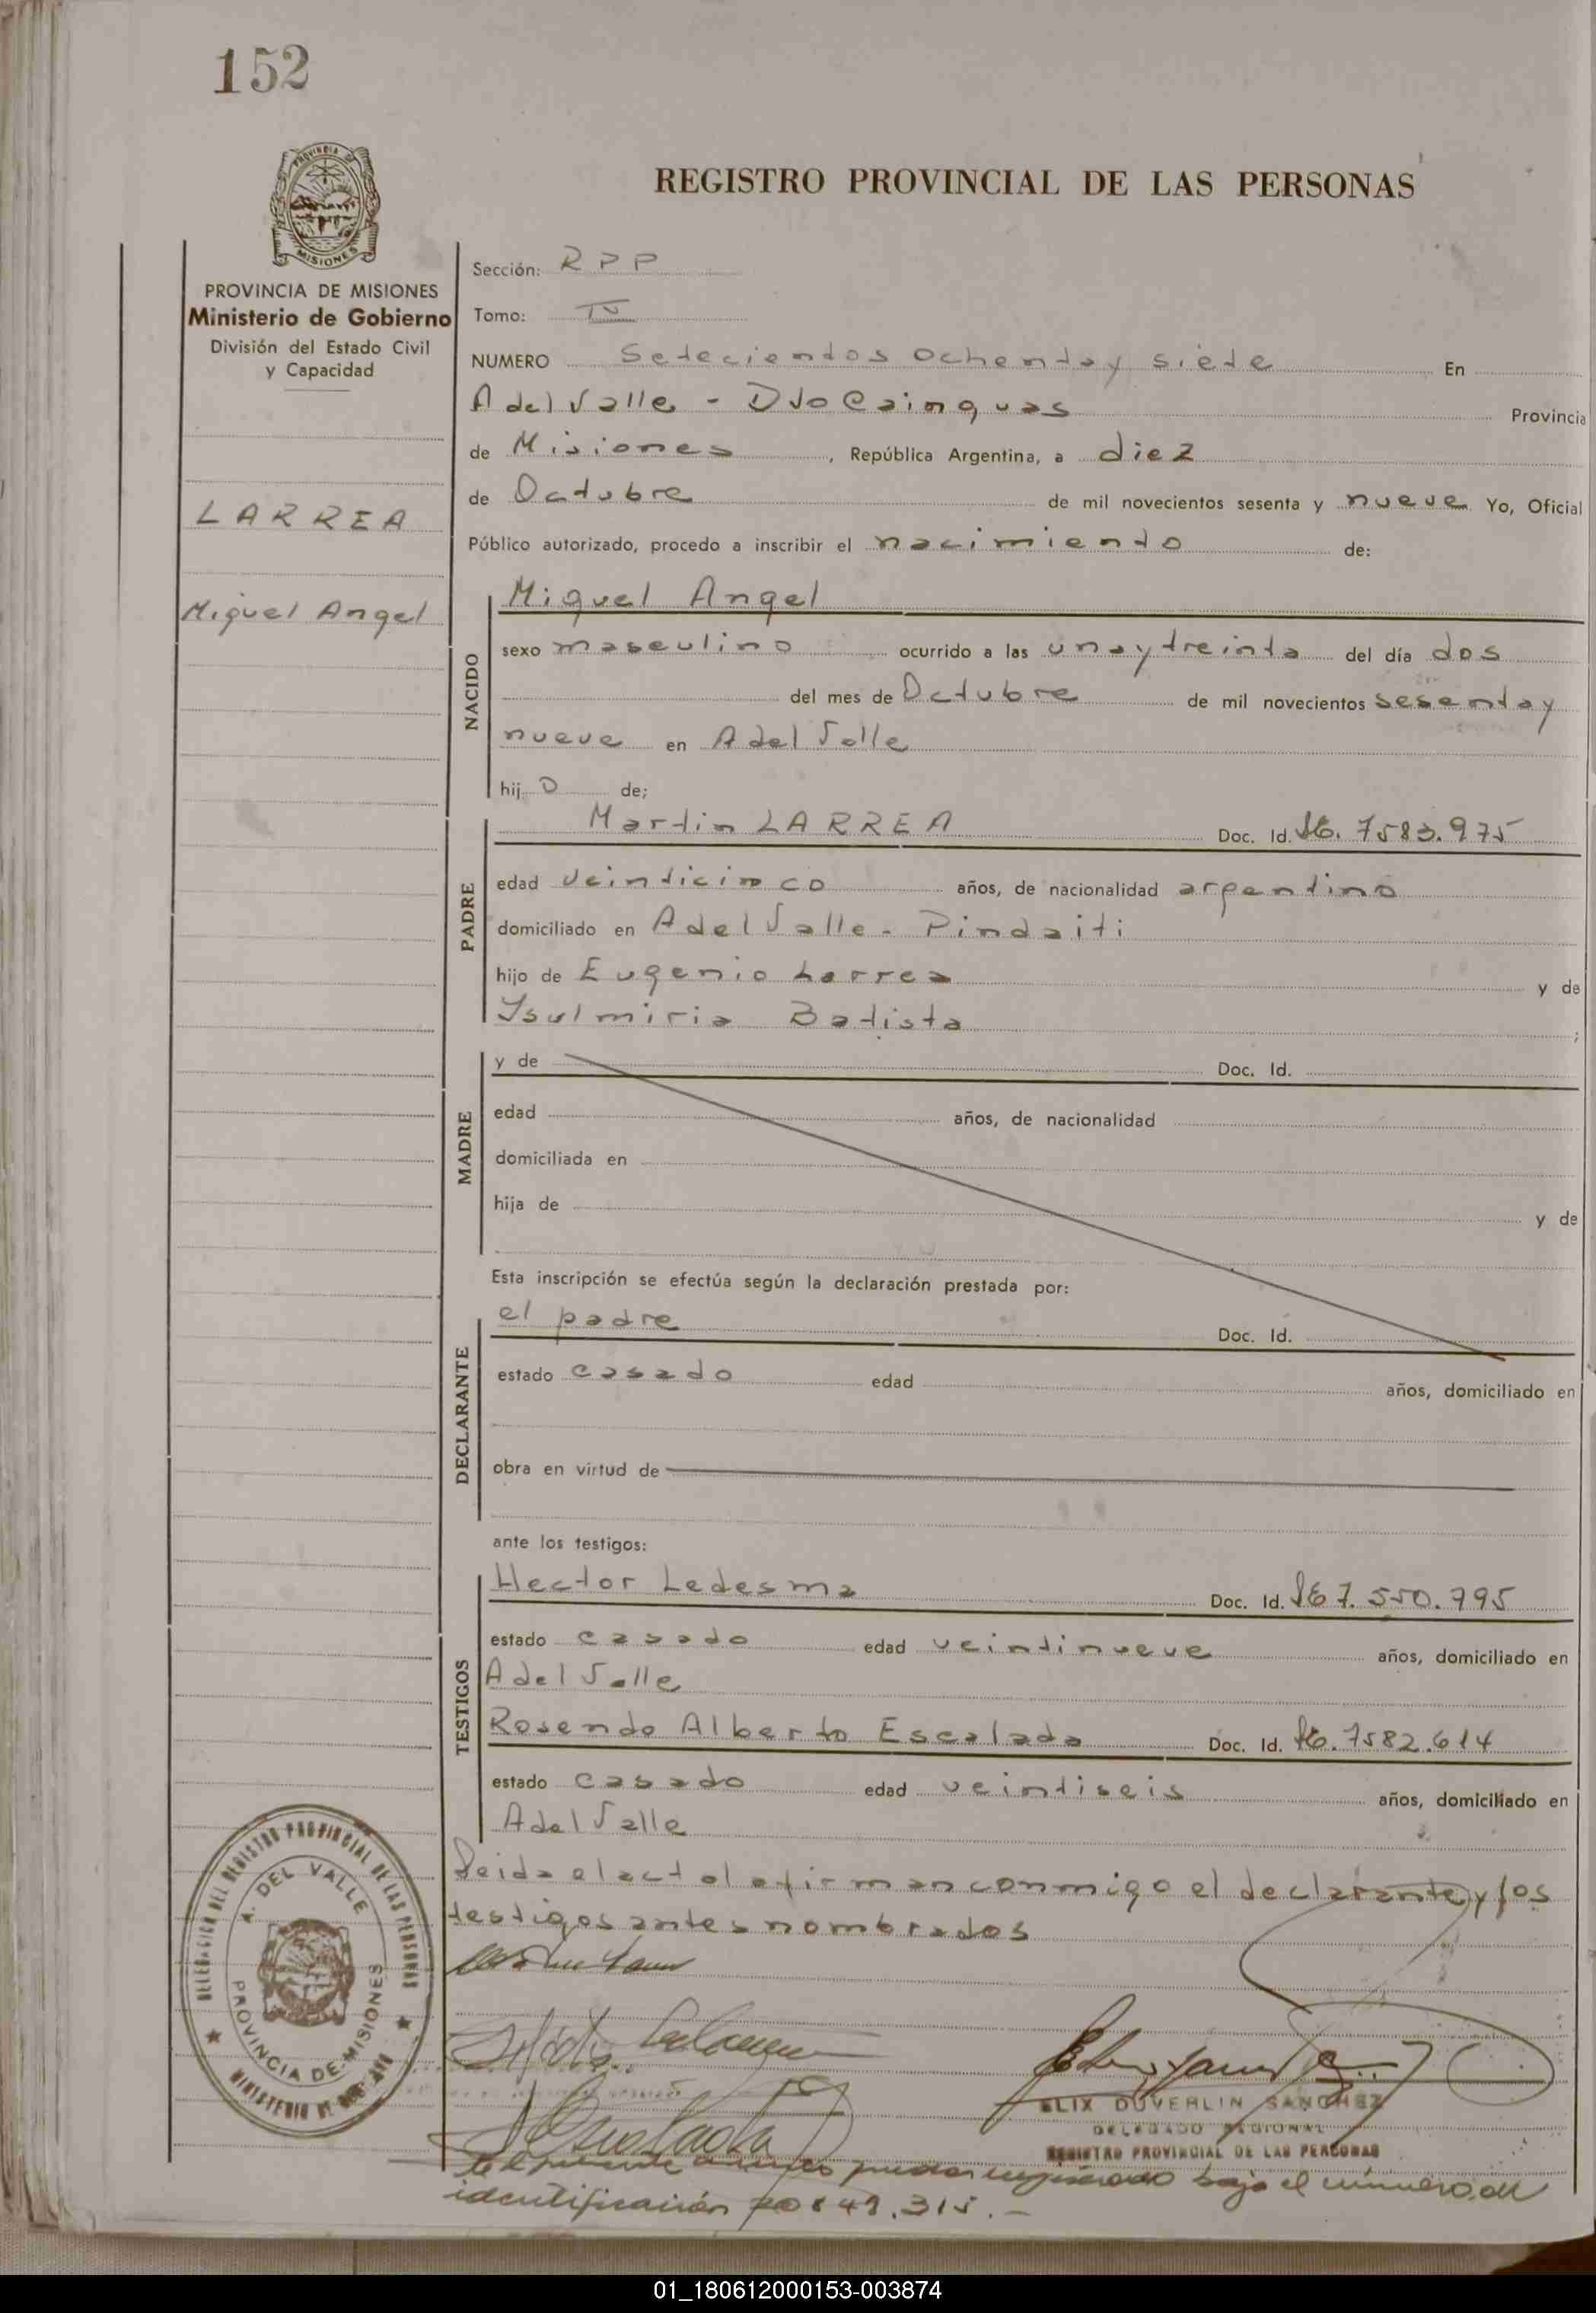 152
PROVINCIA DE
MISIONES
PROVINCIA DE MISIONES
Ministerio de Gobierno
División del Estado Civil
y Capacidad
LARREA
Miguel Angel
REGISTRO PROVINCIAL DE LAS PERSONAS
Sección: RPP
Tomo: IV
NUMERO Setecientos Ochenta y siete En
A del Valle - Dto Cainguas Provincia
de Misiones, República Argentina, a diez
de Octubre de mil novecientos sesenta y nueve Yo, Oficial
Público autorizado, procedo a inscribir el nacimiento de:
NACIDO
Miguel Angel
sexo masculino ocurrido a las una y treinta del día dos
del mes de Octubre de mil novecientos sesenta y
nueve en A del Valle
hijo de;
PADRE
Martin LARREA Doc. Id. 7583.975
edad veinticinco años, de nacionalidad argentino
domiciliado en A del Valle - Pindaiti
hijo de Eugenio Larrea y de
Ysulmiria Batista ;
MADRE
y de Doc. Id.
edad años, de nacionalidad
domiciliada en
hija de y de
Esta inscripción se efectúa según la declaración prestada por:
DECLARANTE
el padre Doc. Id.
estado casado edad años, domiciliado en
obra en virtud de
ante los testigos:
TESTIGOS
Hector Ledesma Doc. Id. 7.550.795
estado casado edad veintinueve años, domiciliado en
A del Valle
Rosendo Alberto Escalada Doc. Id. 7582.614
estado casado edad veintiseis años, domiciliado en
A del Valle
Leida el act el firman conmigo el declarante y los
testigos antes nombrados
DELEGACION DEL REGISTRO PROVINCIAL DE LAS PERSONAS
A. DEL VALLE
PROVINCIA DE MISIONES
MINISTERIO DE GOBIERNO
ELIX DUVERLIN SANCHEZ
DELEGADO REGIONAL
REGISTRO PROVINCIAL DE LAS PERSONAS
presente bajo el número de
identificación 20849.315.-
01_180612000153-003874